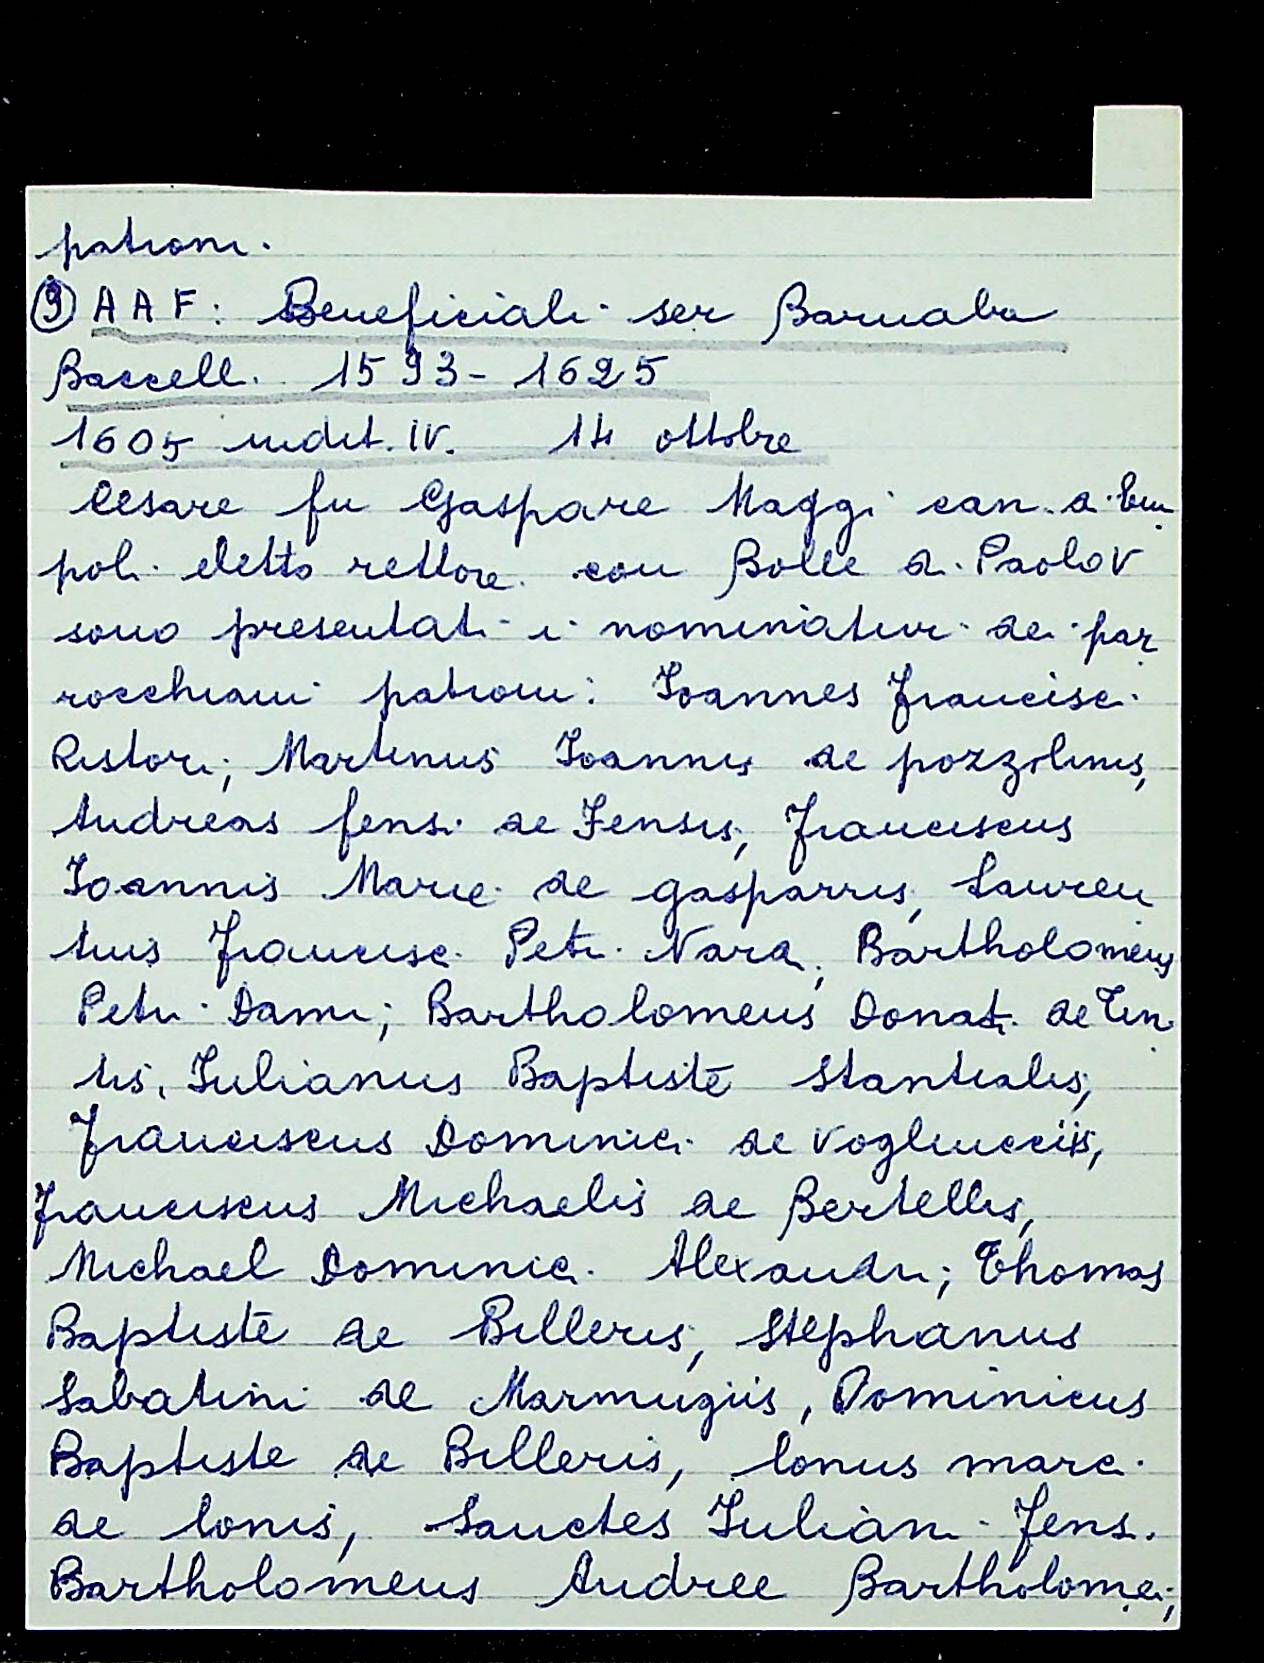 patroni.
⑨ AAF: Beneficiali ser Barnaba
Baccelli. 1593-1625
1605 indit. IV. 14 ottobre
Cesare fu Gaspare Maggi can. a Em
poli eletto rettore con Bolle di Paolo V
sono presentati i nominativi dei par
rocchiani patroni: Ioannes Francisci
Ristori; Martinus Ioannis de pozzolinis,
Andreas fensi de Fensis, Franciscus
Ioannis Marie de gasparris, Lauren
tius Francisci Petri Nara, Bartholomeus
Petri Dami; Bartholomeus Donati de Tin
tis, Iulianus Baptiste Stantialis,
Franciscus Dominici de Vogliucciis,
Franciscus Michaelis de Bertellis,
Michael Dominici Alexandri; Thomas
Baptiste de Billeris, Stephanus
Sabatini de Marmugiis, Dominicus
Baptiste de Billeris, lonus marci
de lonis, Sanctes Iuliani Fensi.
Bartholomeus Andree Bartholomei;